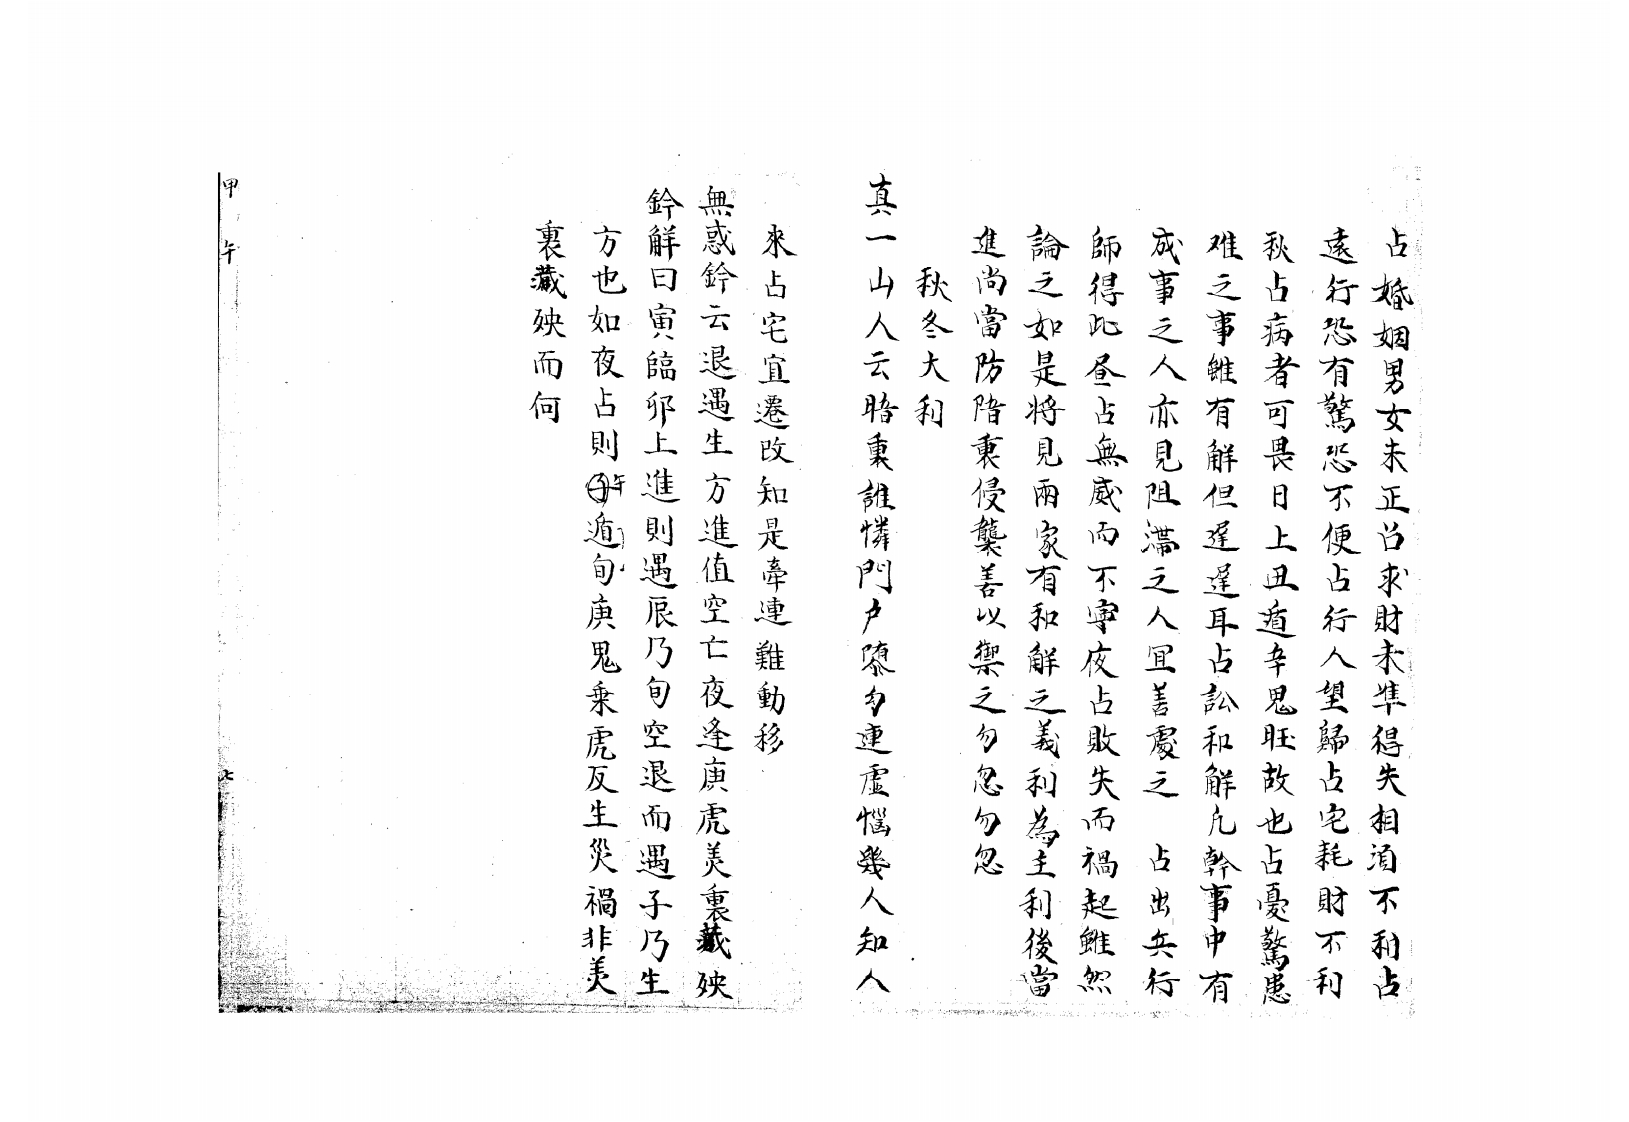 占婚姻男女未正占求財未準得失相須不利占
遠行恐有驚恐不便占行人望歸占宅耗財不利
秋占病者可畏日上丑遁辛鬼旺故也占憂驚患
难之事雖有解但遲遲耳占訟和解凡幹事中有
成事之人亦見阻滯之人宜善處之　占出兵行
師得此昼占無威而不寧夜占敗失而禍起雖然
論之如是将見兩家有和解之義利為主利後當
進尚當防陰裏侵襲善以禦之勿忽勿忽
秋冬大利
真一山人云暗裏誰憐門戶隳勾連虛惱幾人知人
來占宅宜遷改知是牽連難動移
無惑鈐云退遇生方進值空亡夜逢庚虎美裏藏殃
鈐解曰寅臨卯上進則遇辰乃旬空退而遇子乃生
方也如夜占則子午遁旬庚鬼乗虎反生災禍非美
裏藏殃而何
甲午
七